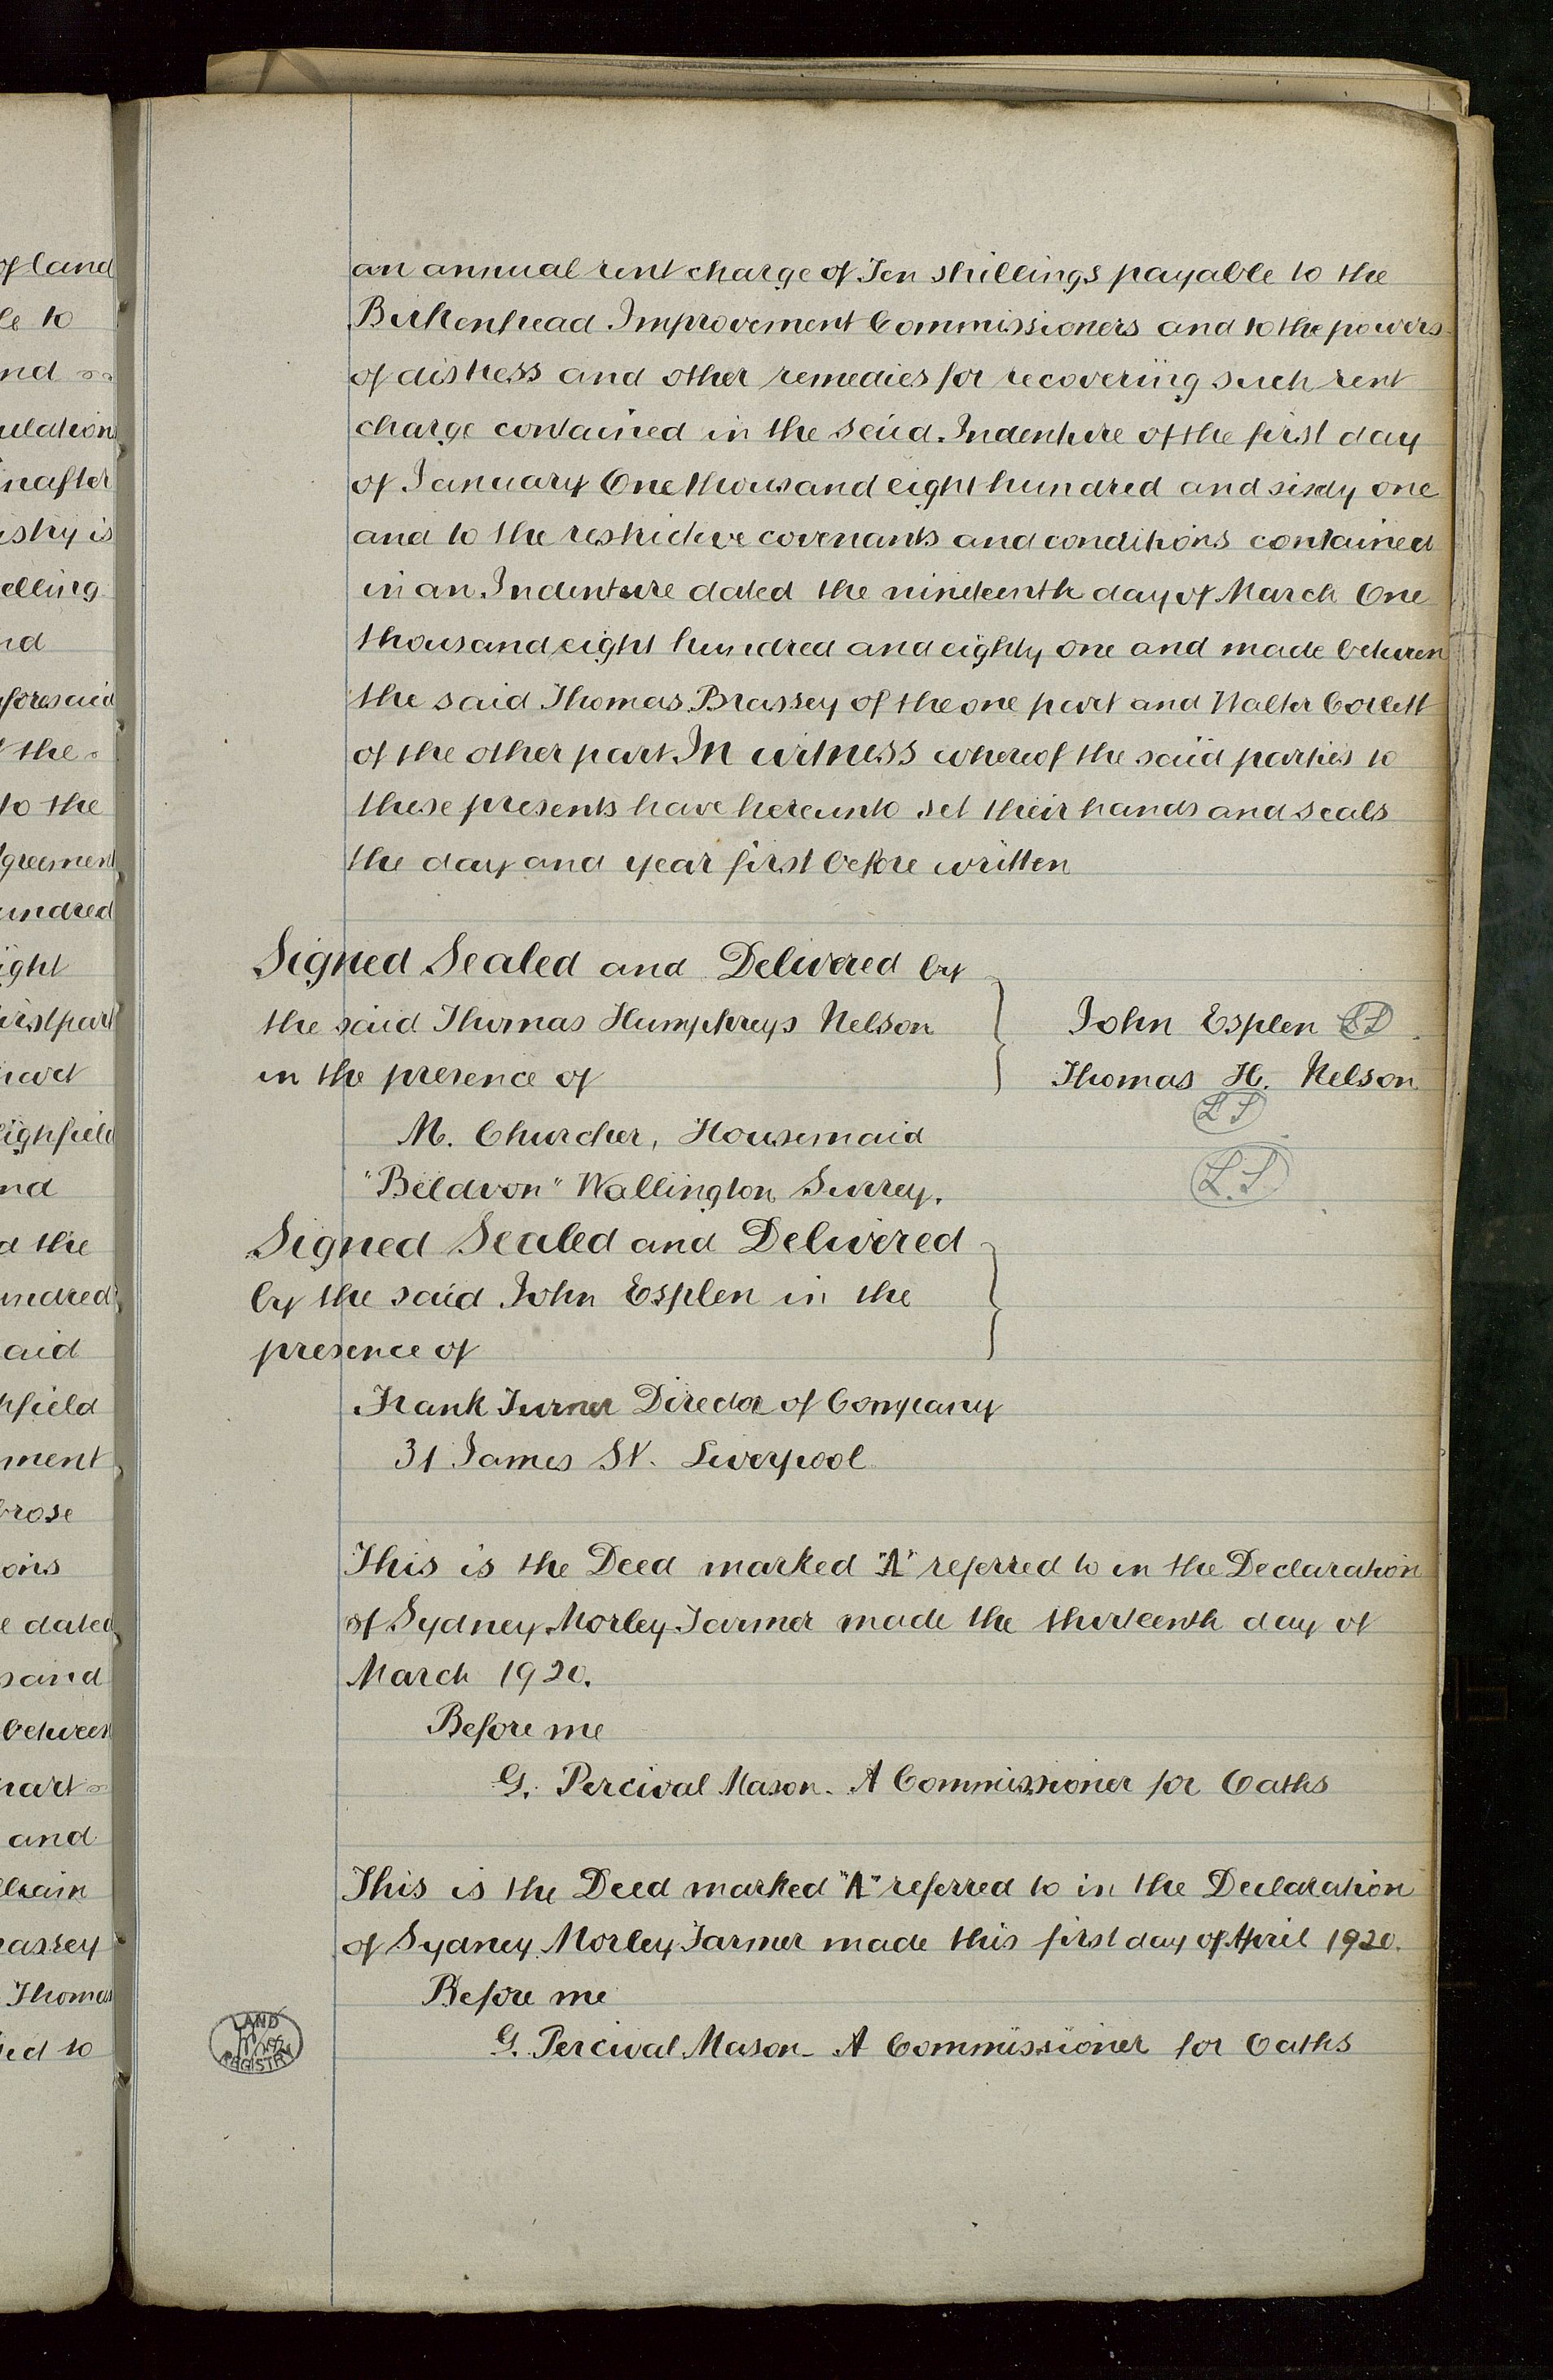 of land
le to
nd
ulation
inafter
istry is
elling
nd
foresaid
the
to the
greement
undred
ight
irst part
part
ighfield
nd
d the
undred
aid
hfield
ment
brose
ons
e dated
sand
between
part
and
rassey
Thomas
ed to
an annual rent charge of Ten shillings payable to the
Birkenhead Improvement Commissioners and to the powers
of distress and other remedies for recovering such rent
charge contained in the said Indenture of the first day
of January One thousand eight hundred and sixty one
and to the restrictive covenants and conditions contained
in an Indenture dated the nineteenth day of March One
thousand eight hundred and eighty one and made between
the said Thomas Brassey of the one part and Walter Collett
of the other part In witness whereof the said parties to
these presents have hereunto set their hands and seals
the day and year first before written
Signed Sealed and Delivered by
the said Thomas Humphreys Nelson
in the presence of
John Esplen LS
Thomas H. Nelson
LS
M. Churcher, Housemaid
"Beldvon" Wallington Surrey.
L.S
Signed Sealed and Delivered
by the said John Esplen in the
presence of
Frank Turner Director of Company
31 James St. Liverpool
This is the Deed marked "A" referred to in the Declaration
of Sydney Morley Farmer made the thirteenth day of
March 1920.
Before me
G. Percival Mason. A Commissioner for Oaths
This is the Deed marked "A" referred to in the Declaration
of Sydney Morley Farmer made this first day of April 1920.
Before me
G. Percival Mason - A Commissioner for Oaths
LAND
REGISTRY